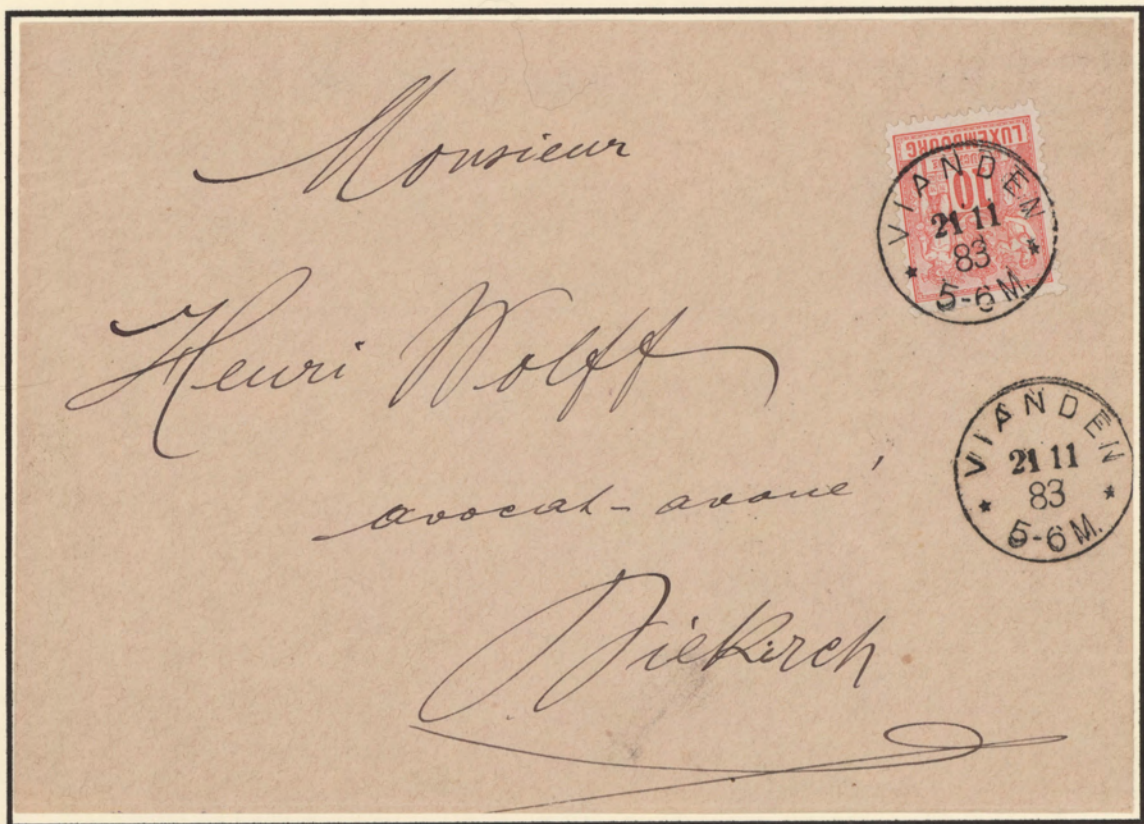 Monsieur
Henri Wolff
avocat-avoué
Diekirch
LUXEMBOURG
10
VIANDEN
21 11
83
5-6 M.
VIANDEN
21 11
83
5-6 M.